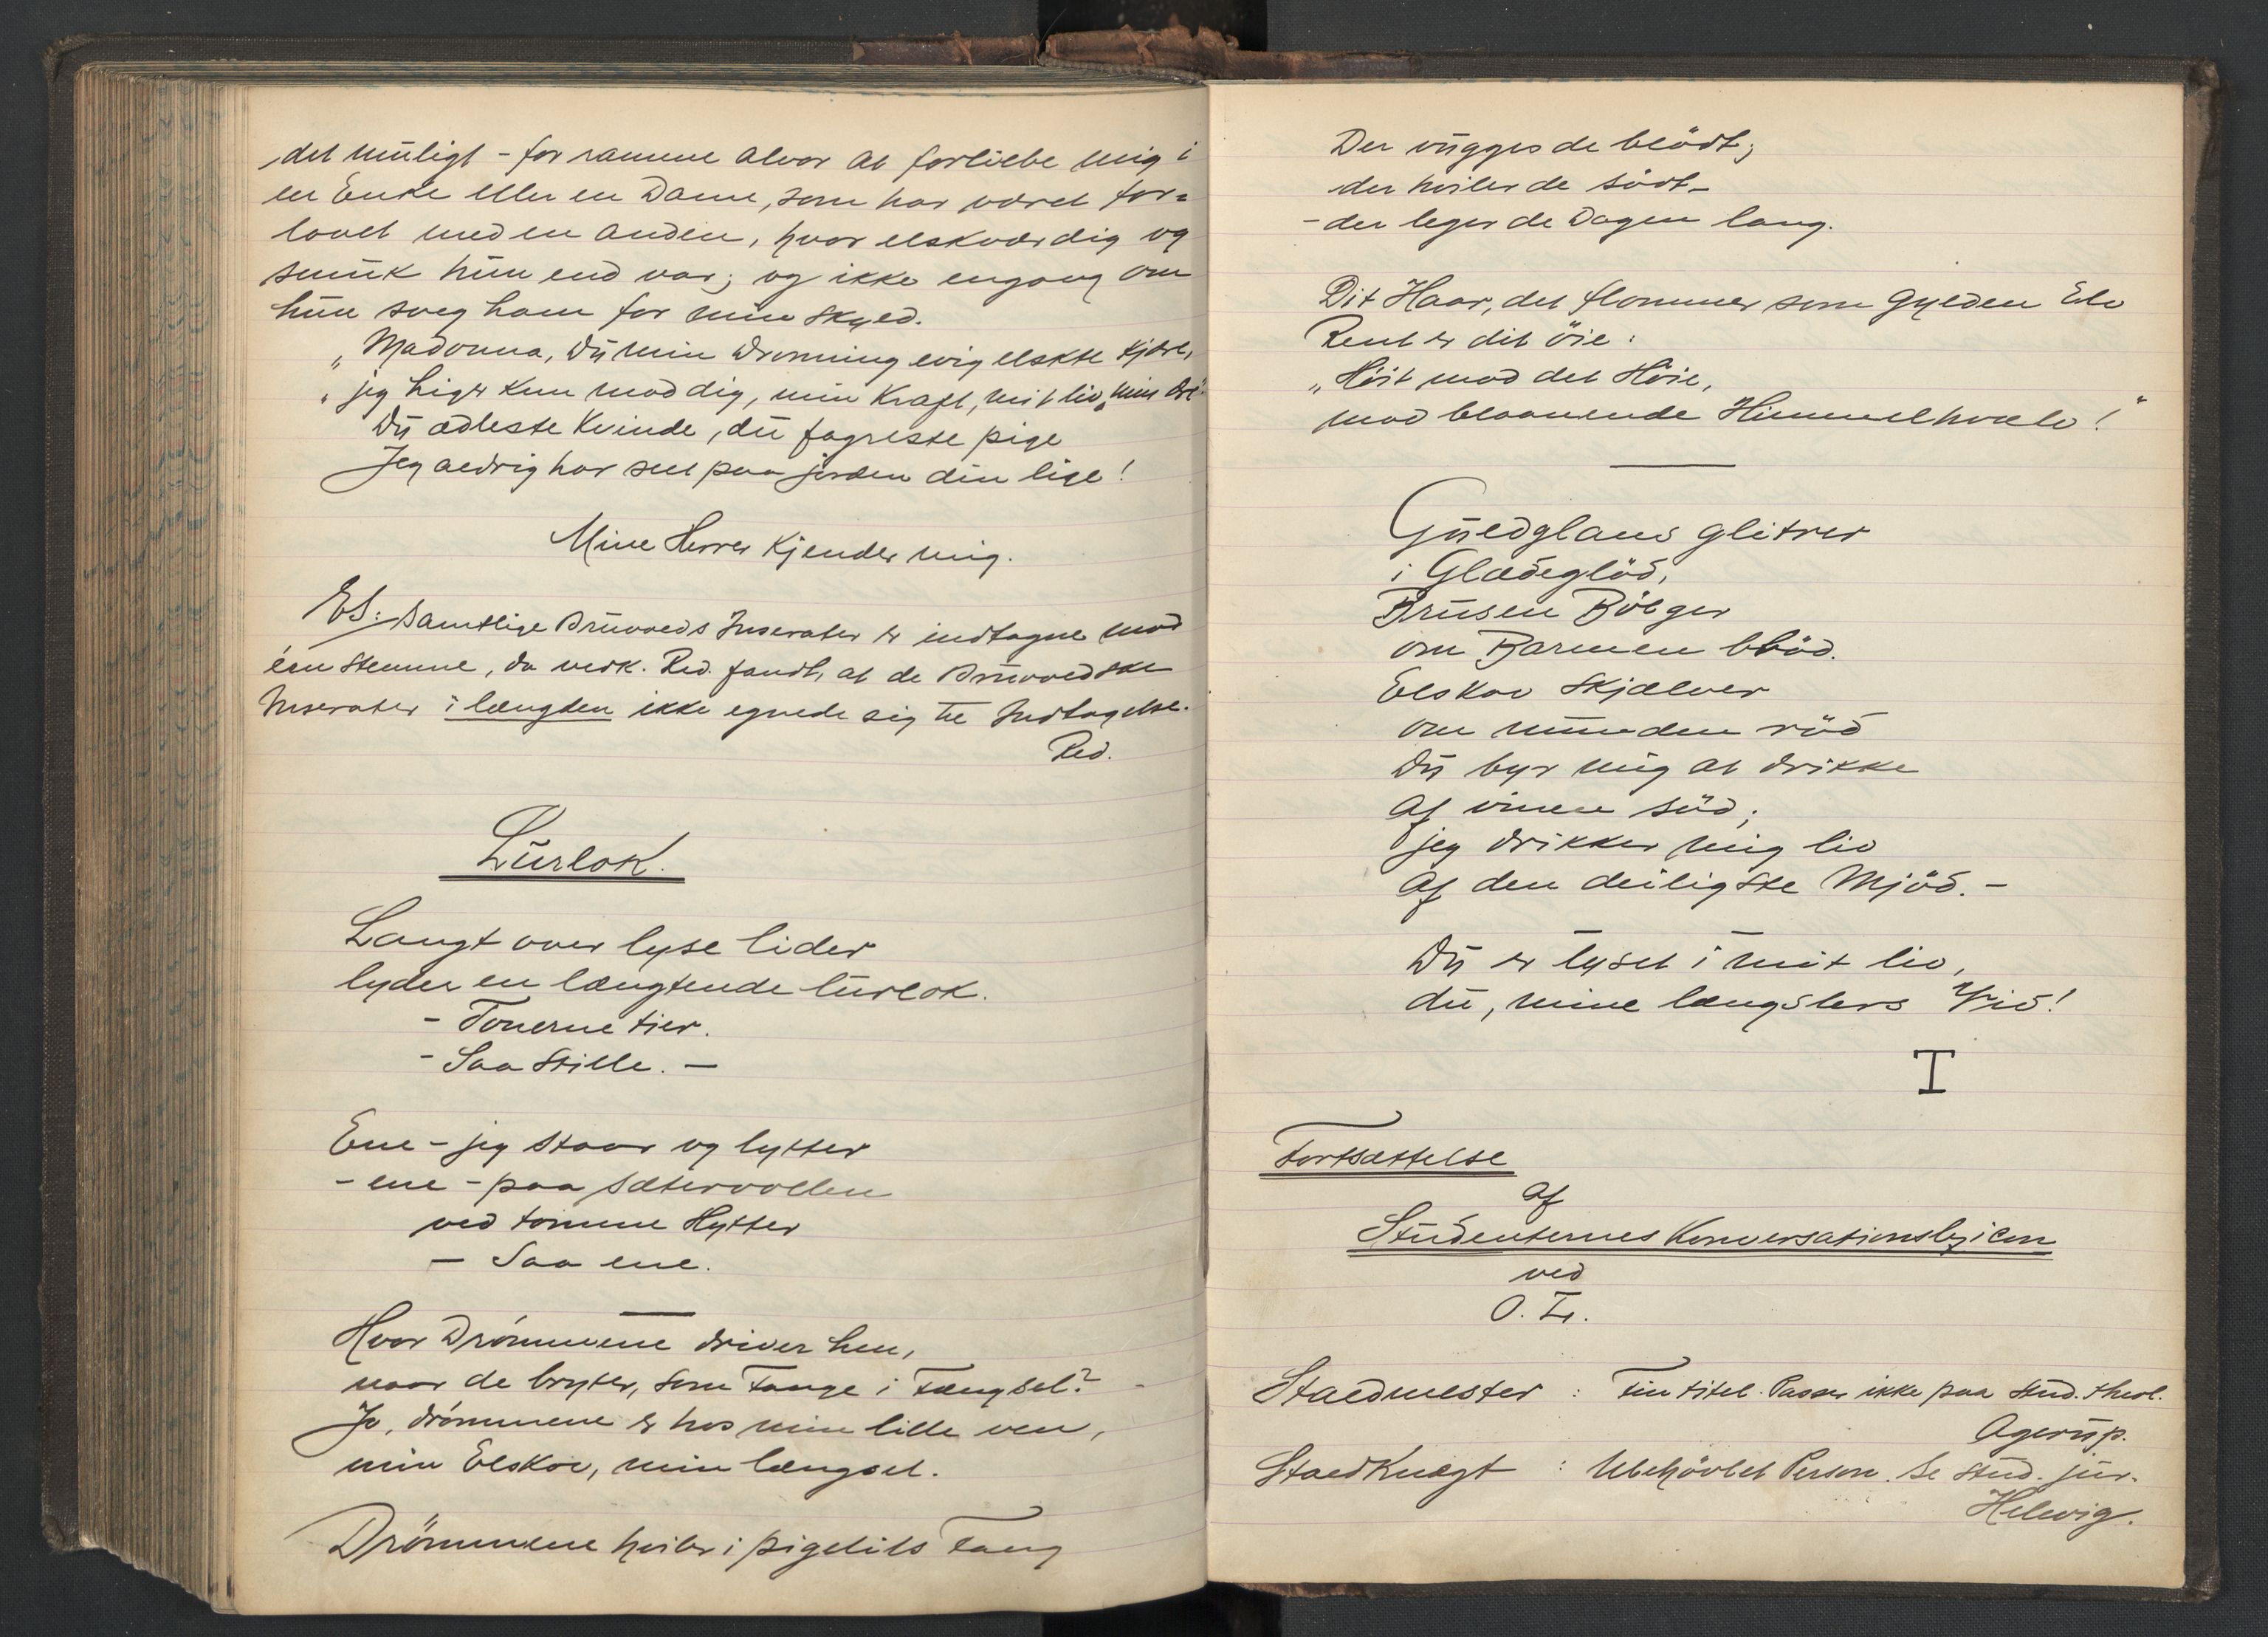 det muligt - for ramme alvor at forliebe mig i
en Enke eller en Dame, som har været for=
lovet med en anden, hvor elskværdig og
smuk hun end var; og ikke engang om
hun sveg ham for min skyld.
„Madonna, Du min Dronning evig elskte kjære,
„jeg higer kun mod dig, min Kraft, mit liv, min
Du ædleste Kvinde, du fagreste pige
Jeg aldrig har seet paa jorden din lige!
Mine Herrer kjender mig.
NB: Samtlige Bruvolds Inserater er indtagne mod
èen stemme, da verk. Red. fandt, at de Bruvoldske
Inserater i længden ikke egnede sig til Indtagelse.
Red.
Lurlok.
Langt over lyse lider
lyder en længtende lurlok.
- Tonerne tier.
- Saa stille. -
Ene - jeg staar og lytter
- ene - paa sætervollen
ved tomme Hytter
- Saa ene.
Hvor Drømmene driver hen,
naar de bryter, som Fange i Fængsel?
Jo, drømmene er hos min lille ven,
min Elskov, min længsel.
Drömmene hviler i pigelils Fang
Der vugges de blödt;
der hviler de södt -
- der leger de Dagen lang.
Dit Haar, det flommer som gylden Elv
Rent er dit öie:
„Höit mod det Höie,
mod blaanende Himmelhvælv!"
Guldglans glitrer
i Glædeglöd,
Brusen Bölger
om Barmen blöd.
Elskov skjælver
om munden röd
Du byr mig at drikke
af vinen söd;
jeg drikker mig liv
af den deiligste Mjöd. -
Du er lyset i mit liv,
du, mine længslers Viv!
T
Fortsættelse
af
Studenternes Konversationslexicon
ved
O. Tr.
Staldmester : Fin titel. Passer ikke paa stud. theol.
Agerup.
Staldknægt : Ubehövlet Person. Se stud. jur.
Helwig.